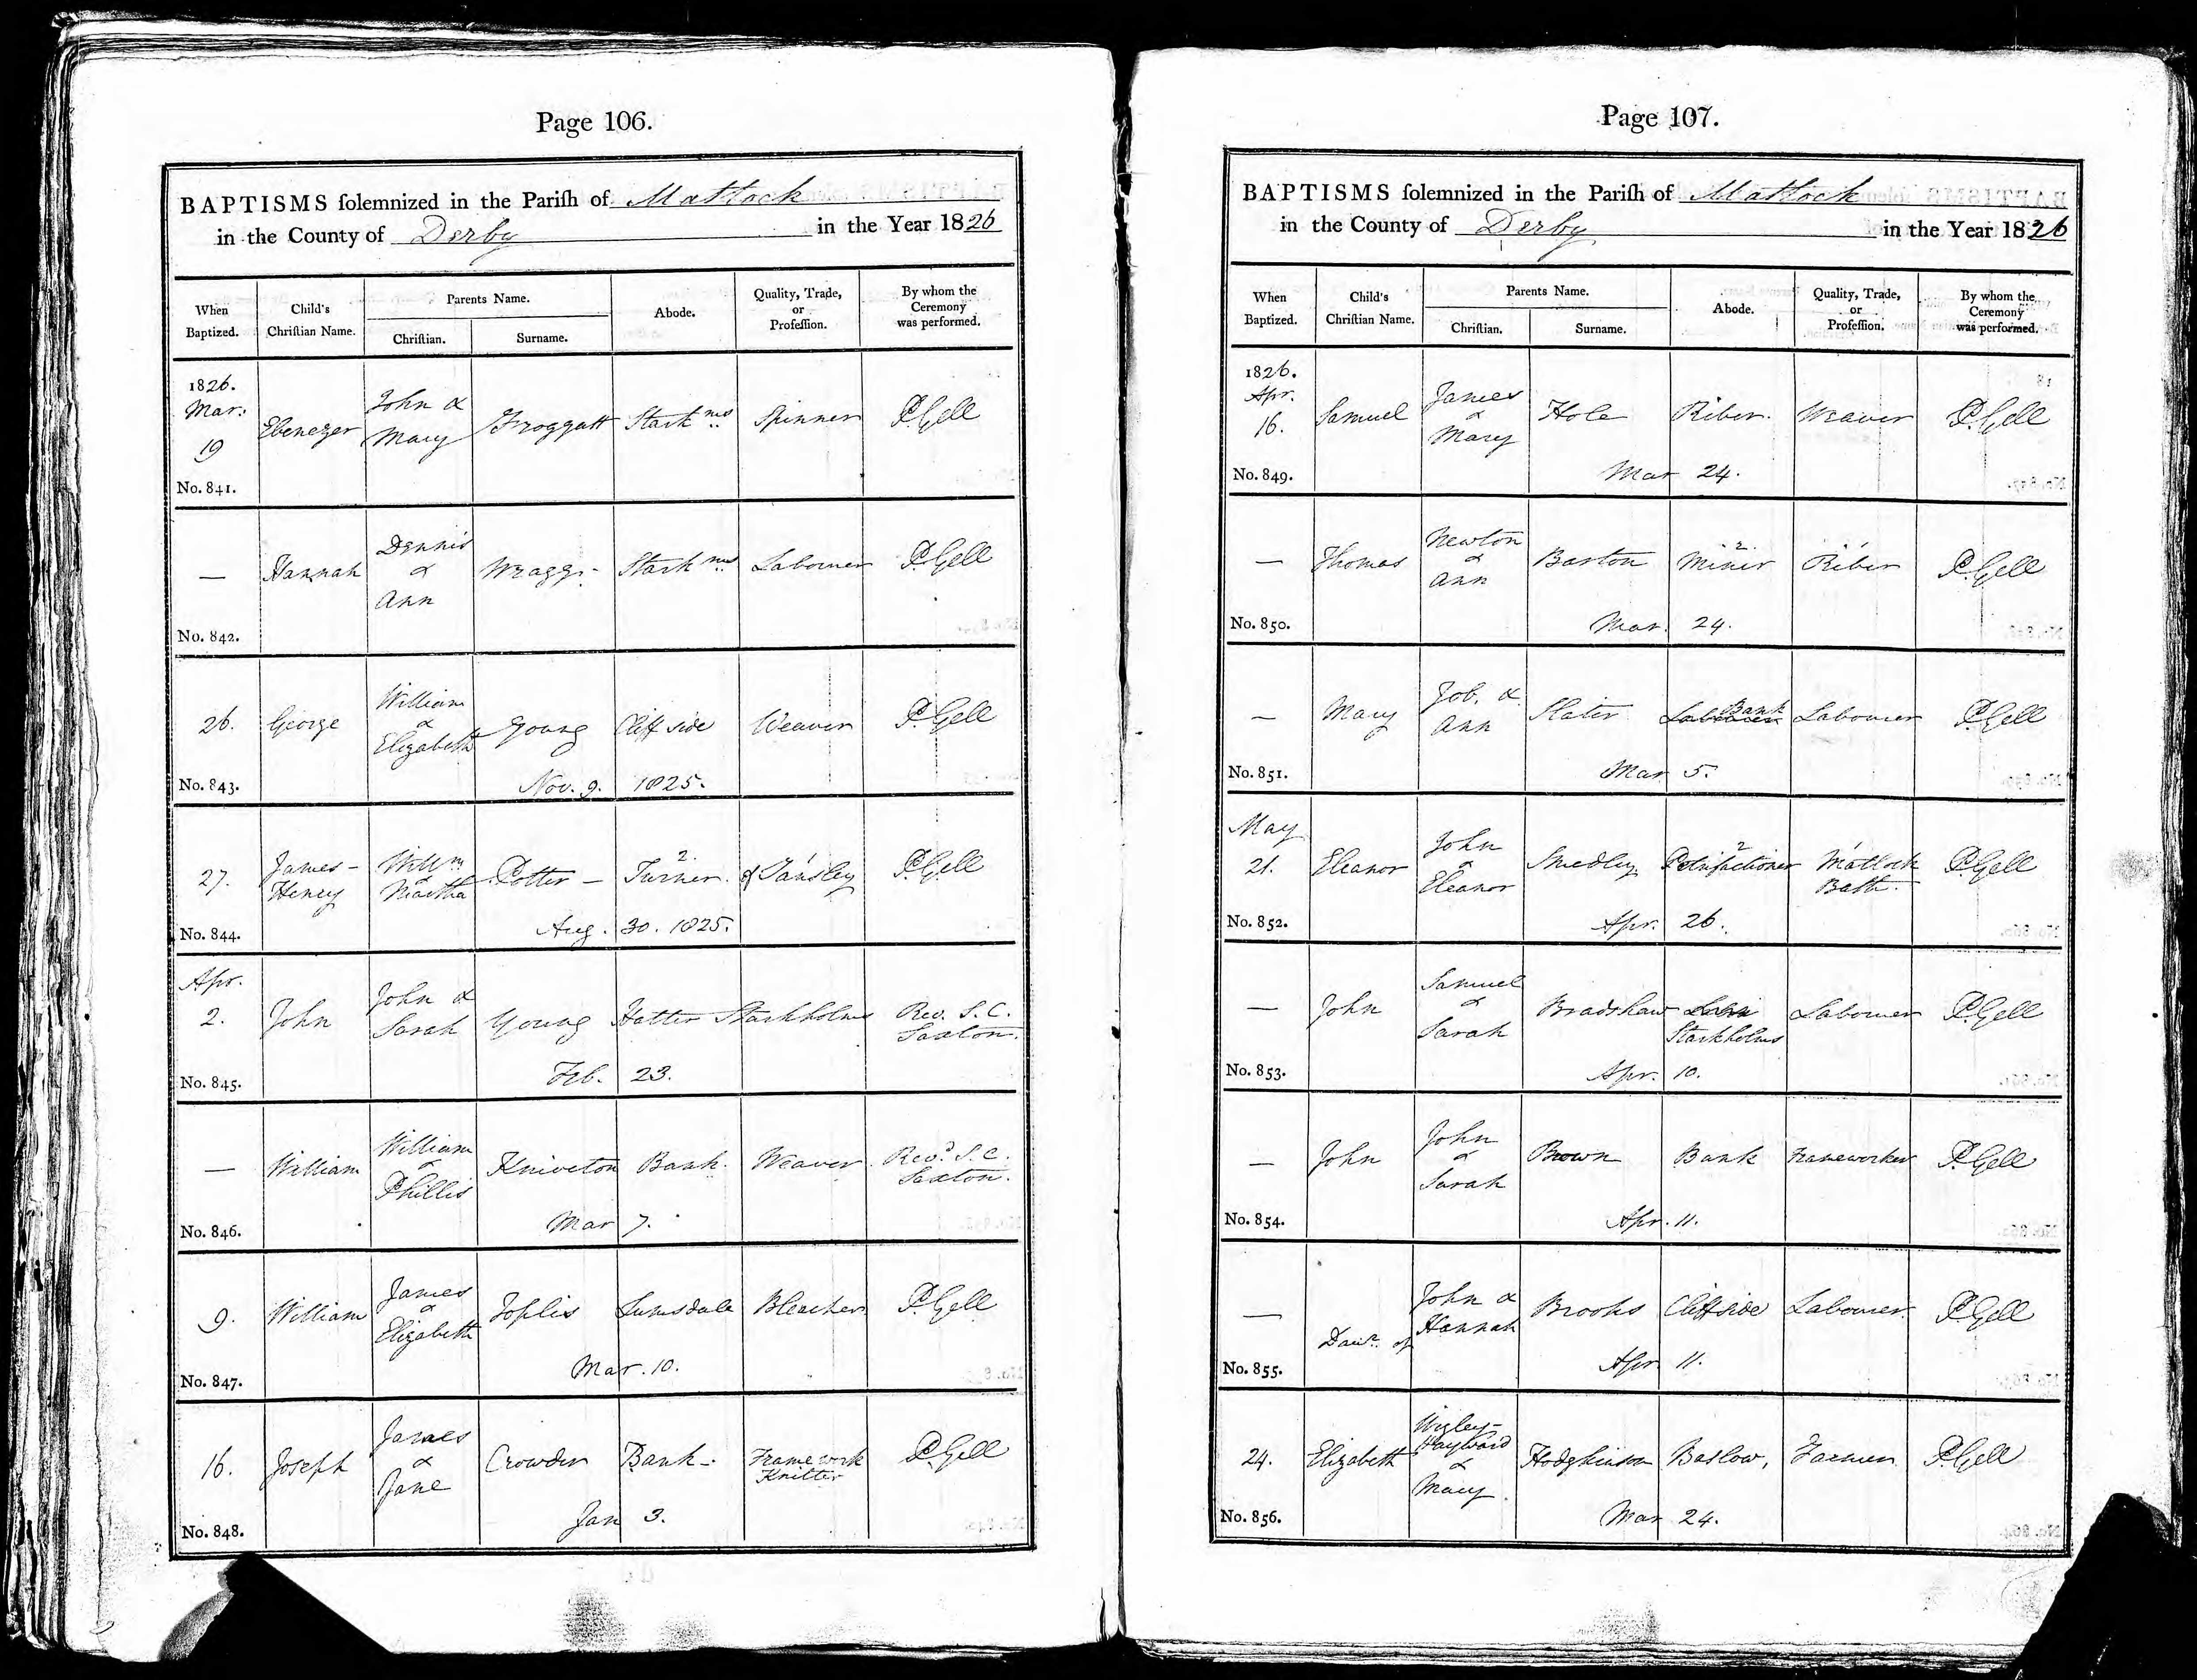 Page 106.
BAPTISMS ſolemnized in the Pariſh of Matlock
in the County of Derby in the Year 1826
When Baptized. Child's Chriſtian Name. Parents Name. Chriſtian. Surname. Abode. Quality, Trade, or Profeſſion. By whom the Ceremony was performed.
1826.
Mar:
19 Ebenezer John & Mary Froggatt Stark ms Spinner P. Gell
No. 841.
— Hannah Dennis & Ann Wragg Stark ms Labourer P. Gell
No. 842.
26. George William & Elizabeth Young Cliff side Weaver P. Gell
No. 843. Nov. 9. 1825.
27. James-Henry Willm & Martha Potter — 2 Turner 1 of Tansley P. Gell
No. 844. Aug. 30. 1825.
Apr.
2. John John & Sarah Young Hatter Starkholms Rev. S. C. Saxton.
No. 845. Feb. 23.
— William William & Phillis Kniveton Bank. Weaver Revd. S. C. Saxton.
No. 846. Mar 7.
9. William James & Elizabeth Joplis Lumsdale Bleacher P. Gell
No. 847. Mar. 10.
16. Joseph James & Jane Crowder Bank — Frame work Knitter P. Gell
No. 848. Jan 3.
Page 107.
BAPTISMS ſolemnized in the Pariſh of Matlock
in the County of Derby in the Year 1826
When Baptized. Child's Chriſtian Name. Parents Name. Chriſtian. Surname. Abode. Quality, Trade, or Profeſſion. By whom the Ceremony was performed.
1826.
Apr.
16. Samuel James & Mary Hole Riber. Weaver P. Gell
No. 849. Mar 24.
— Thomas Newton & Ann Barton 2 Miner 1 Riber P. Gell
No. 850. Mar. 24.
— Mary Job. & Ann Slater Labourer Bank Labourer P. Gell
No. 851. Mar 5.
May
21. Eleanor John & Eleanor Smedley 2 Petrifactioner 1 Matlock Bath. P. Gell
No. 852. Apr. 26.
— John Samuel & Sarah Bradshaw Starkholms Labourer P. Gell
No. 853. Apr. 10.
— John John & Sarah Brown Bank Frameworker P. Gell
No. 854. Apr. 11.
— Daur. of John & Hannah Brooks Cliffside Labourer P. Gell
No. 855. Apr. 11.
24. Elizabeth Wigley-Hayward & Mary Hodgkinson Baslow, Farmer P. Gell
No. 856. Mar 24.